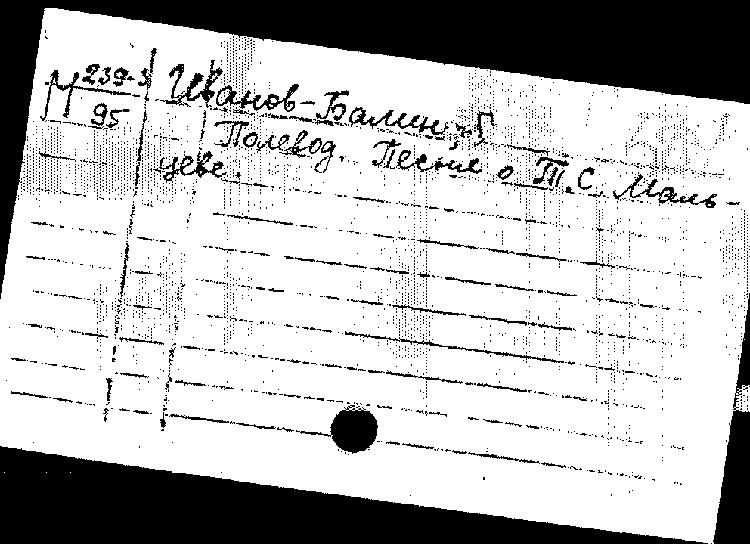 М 239-3
95
Иванов-Балин, Г.
Полевод. Песня о Т.С. Маль-
цеве.